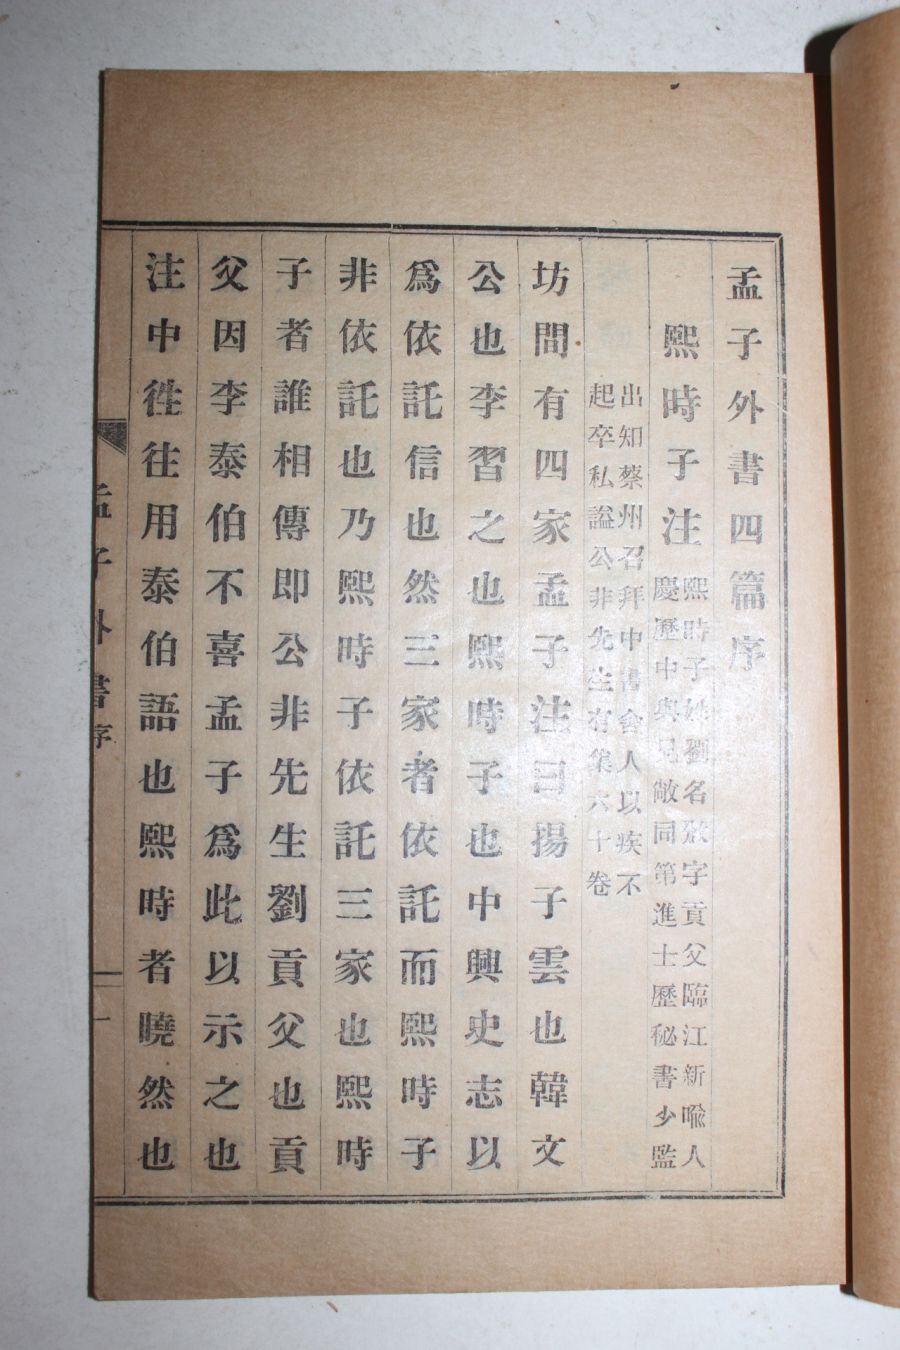 孟子外書四篇序
熙時子注
熙時子姓劉名攽字貢父臨江新喩人
慶歷中與兄敞同第進士歷秘書少監
出知蔡州召拜中書舍人以疾不
起卒私謚公非先生有集六十卷
坊間有四家孟子注曰揚子雲也韓文
公也李習之也熙時子也中興史志以
爲依託信也然三家者依託而熙時子
非依託也乃熙時子依託三家也熙時
子者誰相傳即公非先生劉貢父也貢
父因李泰伯不喜孟子爲此以示之也
注中徃往用泰伯語也熙時者曉然也
孟子外書
序
一